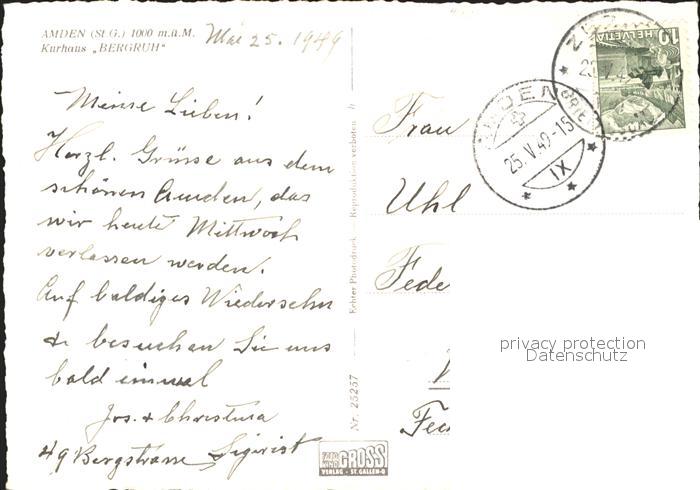 AMDEN (St. G.) 1000 m.ü.M.
Kurhaus „BERGRUH"
Mai 25. 1949
Meine Lieben!
Herzl. Grüsse aus dem
schönen Amden, das
wir heute Mittwoch
verlassen werden.
Auf baldiges Wiedersehn
& besuchen Sie uns
bald einmal
Jos. & Christina
49 Bergstrasse Sigrist
Nr. 25257 Echter Photodruck — Reproduktion verboten
FOTO GROSS
VERLAG - ST. GALLEN-O
HELVETIA
10
AMDEN
25.V.49-15
IX
Frau
Uhl
Fede
privacy protection
Datenschutz